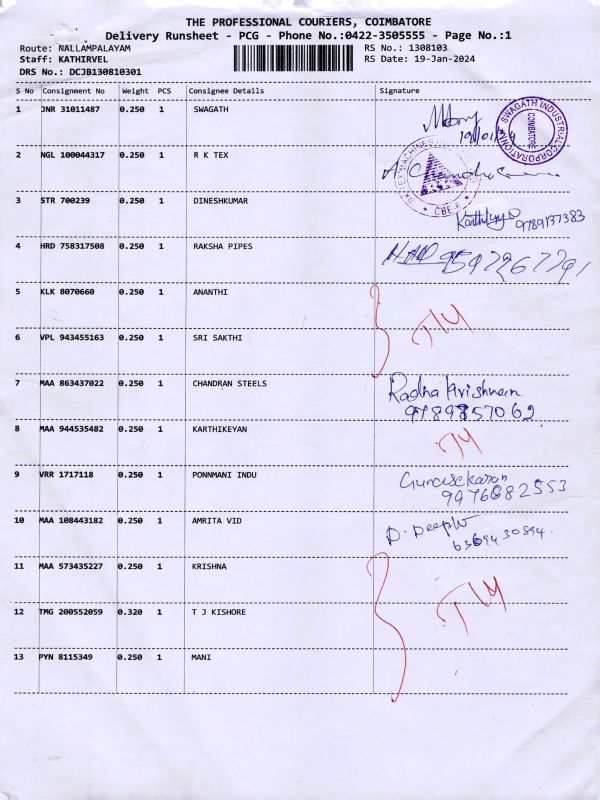 THE PROFESSIONAL COURIERS, COIMBATORE
Delivery Runsheet - PCG - Phone No.:0422-3505555 - Page No.:1
Route: NALLAMPALAYAM RS No.: 1308103
Staff: KATHIRVEL RS Date: 19-Jan-2024
DRS No.: DCJB130810301
S No Consignment No Weight PCS Consignee Details Signature
1 JNR 31011487 0.250 1 SWAGATH
SWAGATH INDUSTRIAL CORPORATION
COIMBATORE
2 NGL 100044317 0.250 1 R K TEX
CBE-6
3 STR 700239 0.250 1 DINESHKUMAR
9789137383
4 HRD 758317508 0.250 1 RAKSHA PIPES
5 KLK 8070660 0.250 1 ANANTHI
TM
6 VPL 943455163 0.250 1 SRI SAKTHI
7 MAA 863437022 0.250 1 CHANDRAN STEELS Radha Krishnan
9789857062
8 MAA 944535482 0.250 1 KARTHIKEYAN TM
9 VRR 1717118 0.250 1 PONNMANI INDU Gunasekaran
9976682553
10 MAA 108443182 0.250 1 AMRITA VID D. Deepk
6369430894.
11 MAA 573435227 0.250 1 KRISHNA
12 TMG 200552059 0.320 1 T J KISHORE TM
13 PYN 8115349 0.250 1 MANI